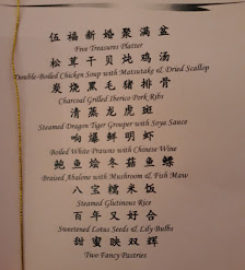 伍福新婚聚满盆
Five Treasures Platter
松茸干贝炖鸡汤
Double-Boiled Chicken Soup with Matsutake & Dried Scallop
炭烧黑毛猪排骨
Charcoal Grilled Iberico Pork Ribs
清蒸龙虎斑
Steamed Dragon Tiger Grouper with Soya Sauce
响爆鲜明虾
Boiled White Prawns with Chinese Wine
鲍鱼烩冬菇鱼鳔
Braised Abalone with Mushroom & Fish Maw
八宝糯米饭
Steamed Glutinous Rice
百年又好合
Sweetened Lotus Seeds & Lily Bulbs
甜蜜映双辉
Two Fancy Pastries